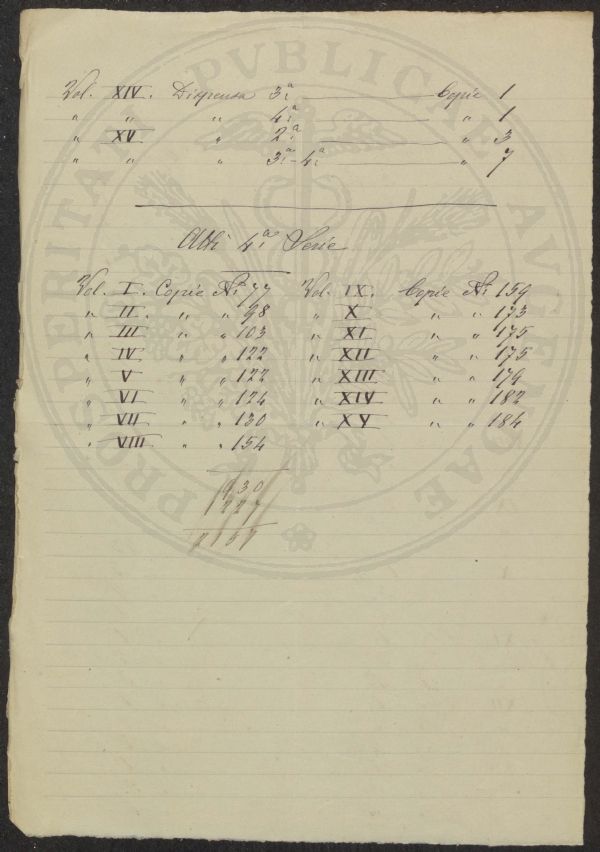 PROSPERITATI PVBLICAE AVGENDAE
Vol. XIV. Dispensa 3.ª — Copie 1
" " " 4.ª — " 1
" XV " 2.ª — " 3
" " " 3.ª-4.ª " 7
Atti 4.ª Serie
Vol. I. Copie Ni 77 Vol. IX. Copie Ni 159
" II " " 98 " X " " 173
" III " " 103 " XI " " 175
" IV " " 122 " XII " " 175
" V " " 122 " XIII " " 179
" VI " " 124 " XIV " " 182
" VII " " 130 " XV " " 184
" VIII " " 154
930
1227
2157